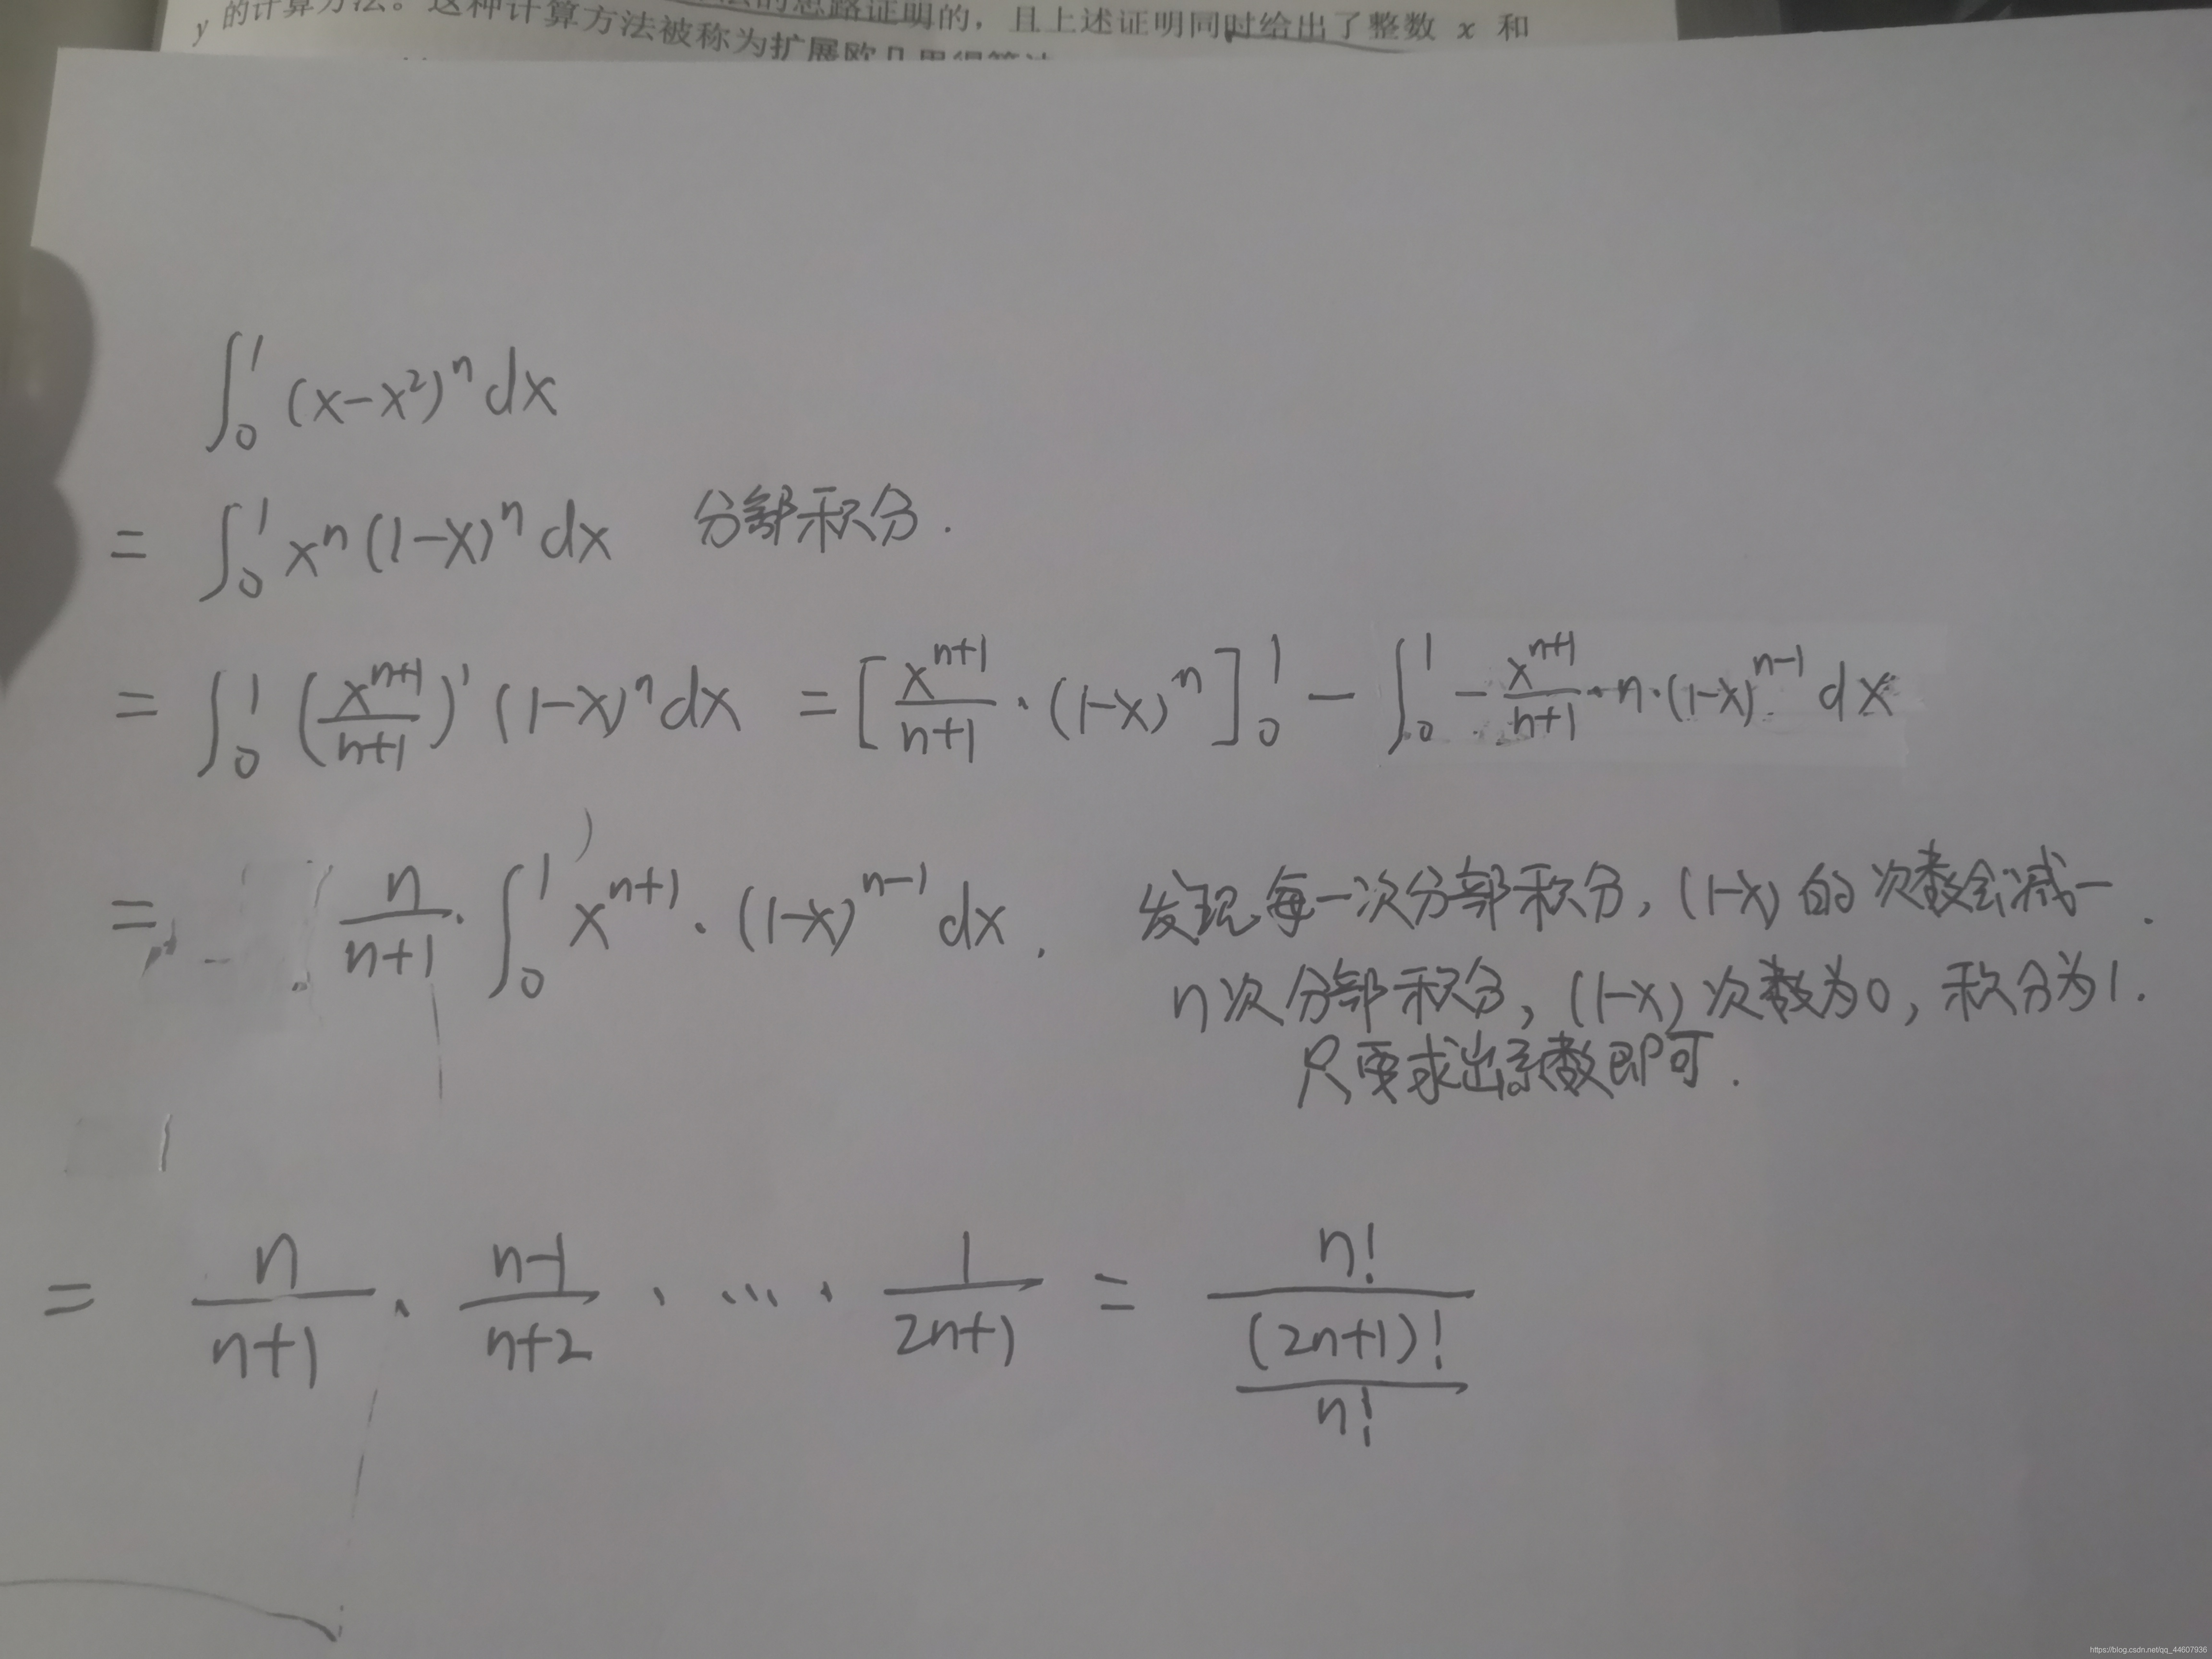 y 的计算方法。这种计算方法被称为扩展欧几里得算法
的思路证明的，且上述证明同时给出了整数 x 和
∫₀¹ (x-x²)ⁿ dx
= ∫₀¹ xⁿ (1-x)ⁿ dx 分部积分.
= ∫₀¹ (xⁿ⁺¹/(n+1))' (1-x)ⁿ dx = [xⁿ⁺¹/(n+1) · (1-x)ⁿ]₀¹ - ∫₀¹ - xⁿ⁺¹/(n+1) · n · (1-x)ⁿ⁻¹ dx
= n/(n+1) · ∫₀¹ xⁿ⁺¹ · (1-x)ⁿ⁻¹ dx. 发现每一次分部积分, (1-x) 的次数会减一.
n次分部积分, (1-x) 次数为0, 积分为1.
只要求出系数即可.
= n/(n+1) · (n-1)/(n+2) · ... · 1/(2n+1) = n!/((2n+1)!/n!)
https://blog.csdn.net/qq_44607936